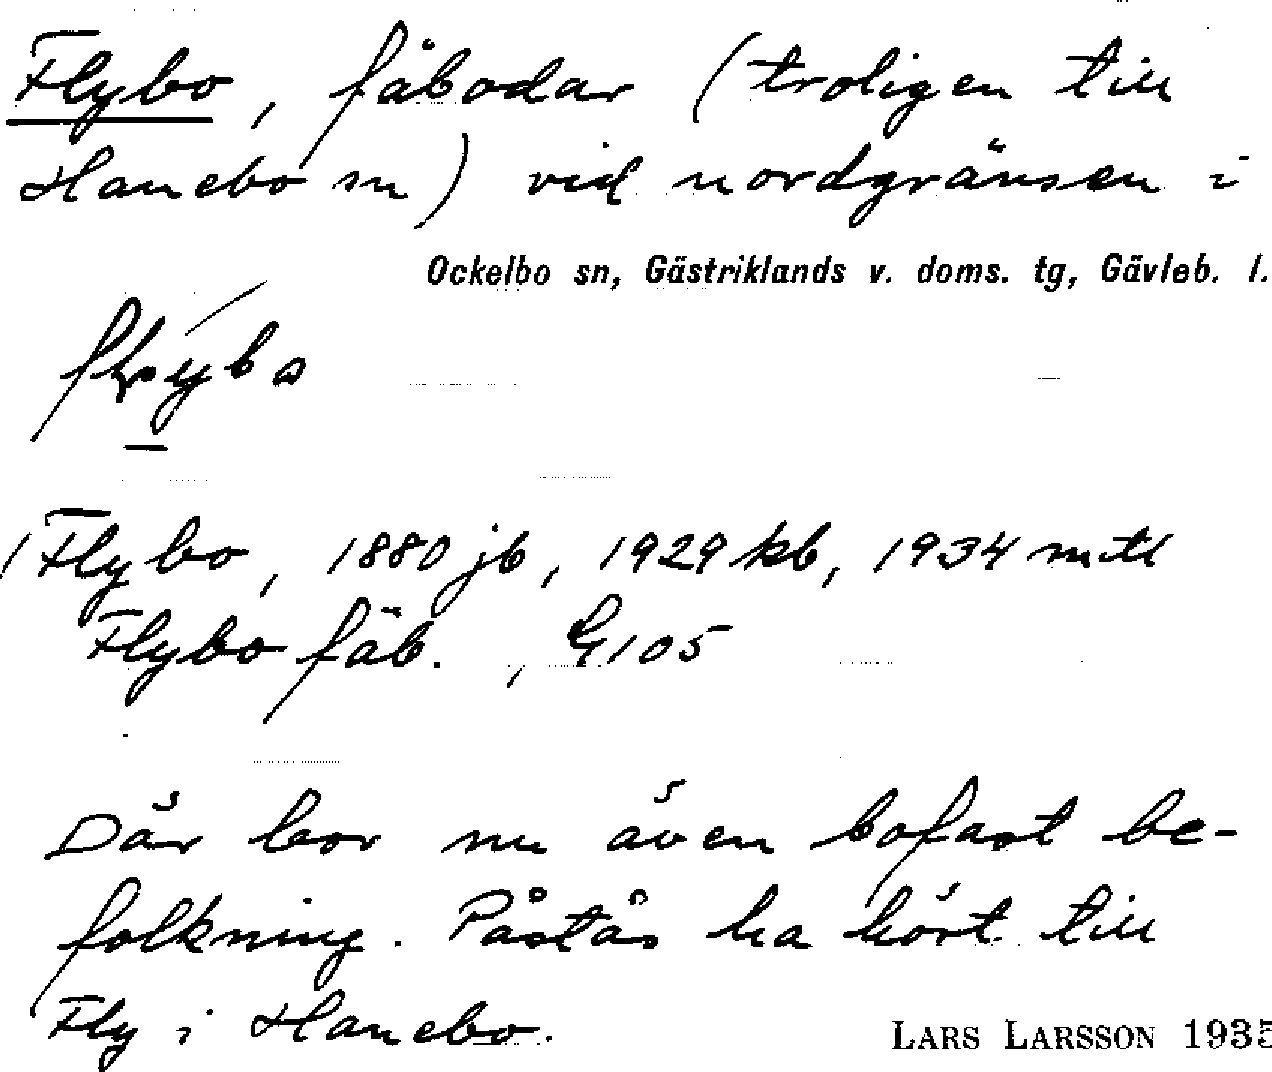 Flybo, fäbodar (troligen till
Hanebo sn) vid nordgränsen i
Ockelbo sn, Gästriklands v. doms. tg, Gävleb. l.
Flybo, 1880 jb, 1929 kb, 1934 mtl
Flybo fäb. , G105
Där bor nu även bofast be-
folkning. Påstås ha hört till
Fly i Hanebo.
LARS LARSSON 1935